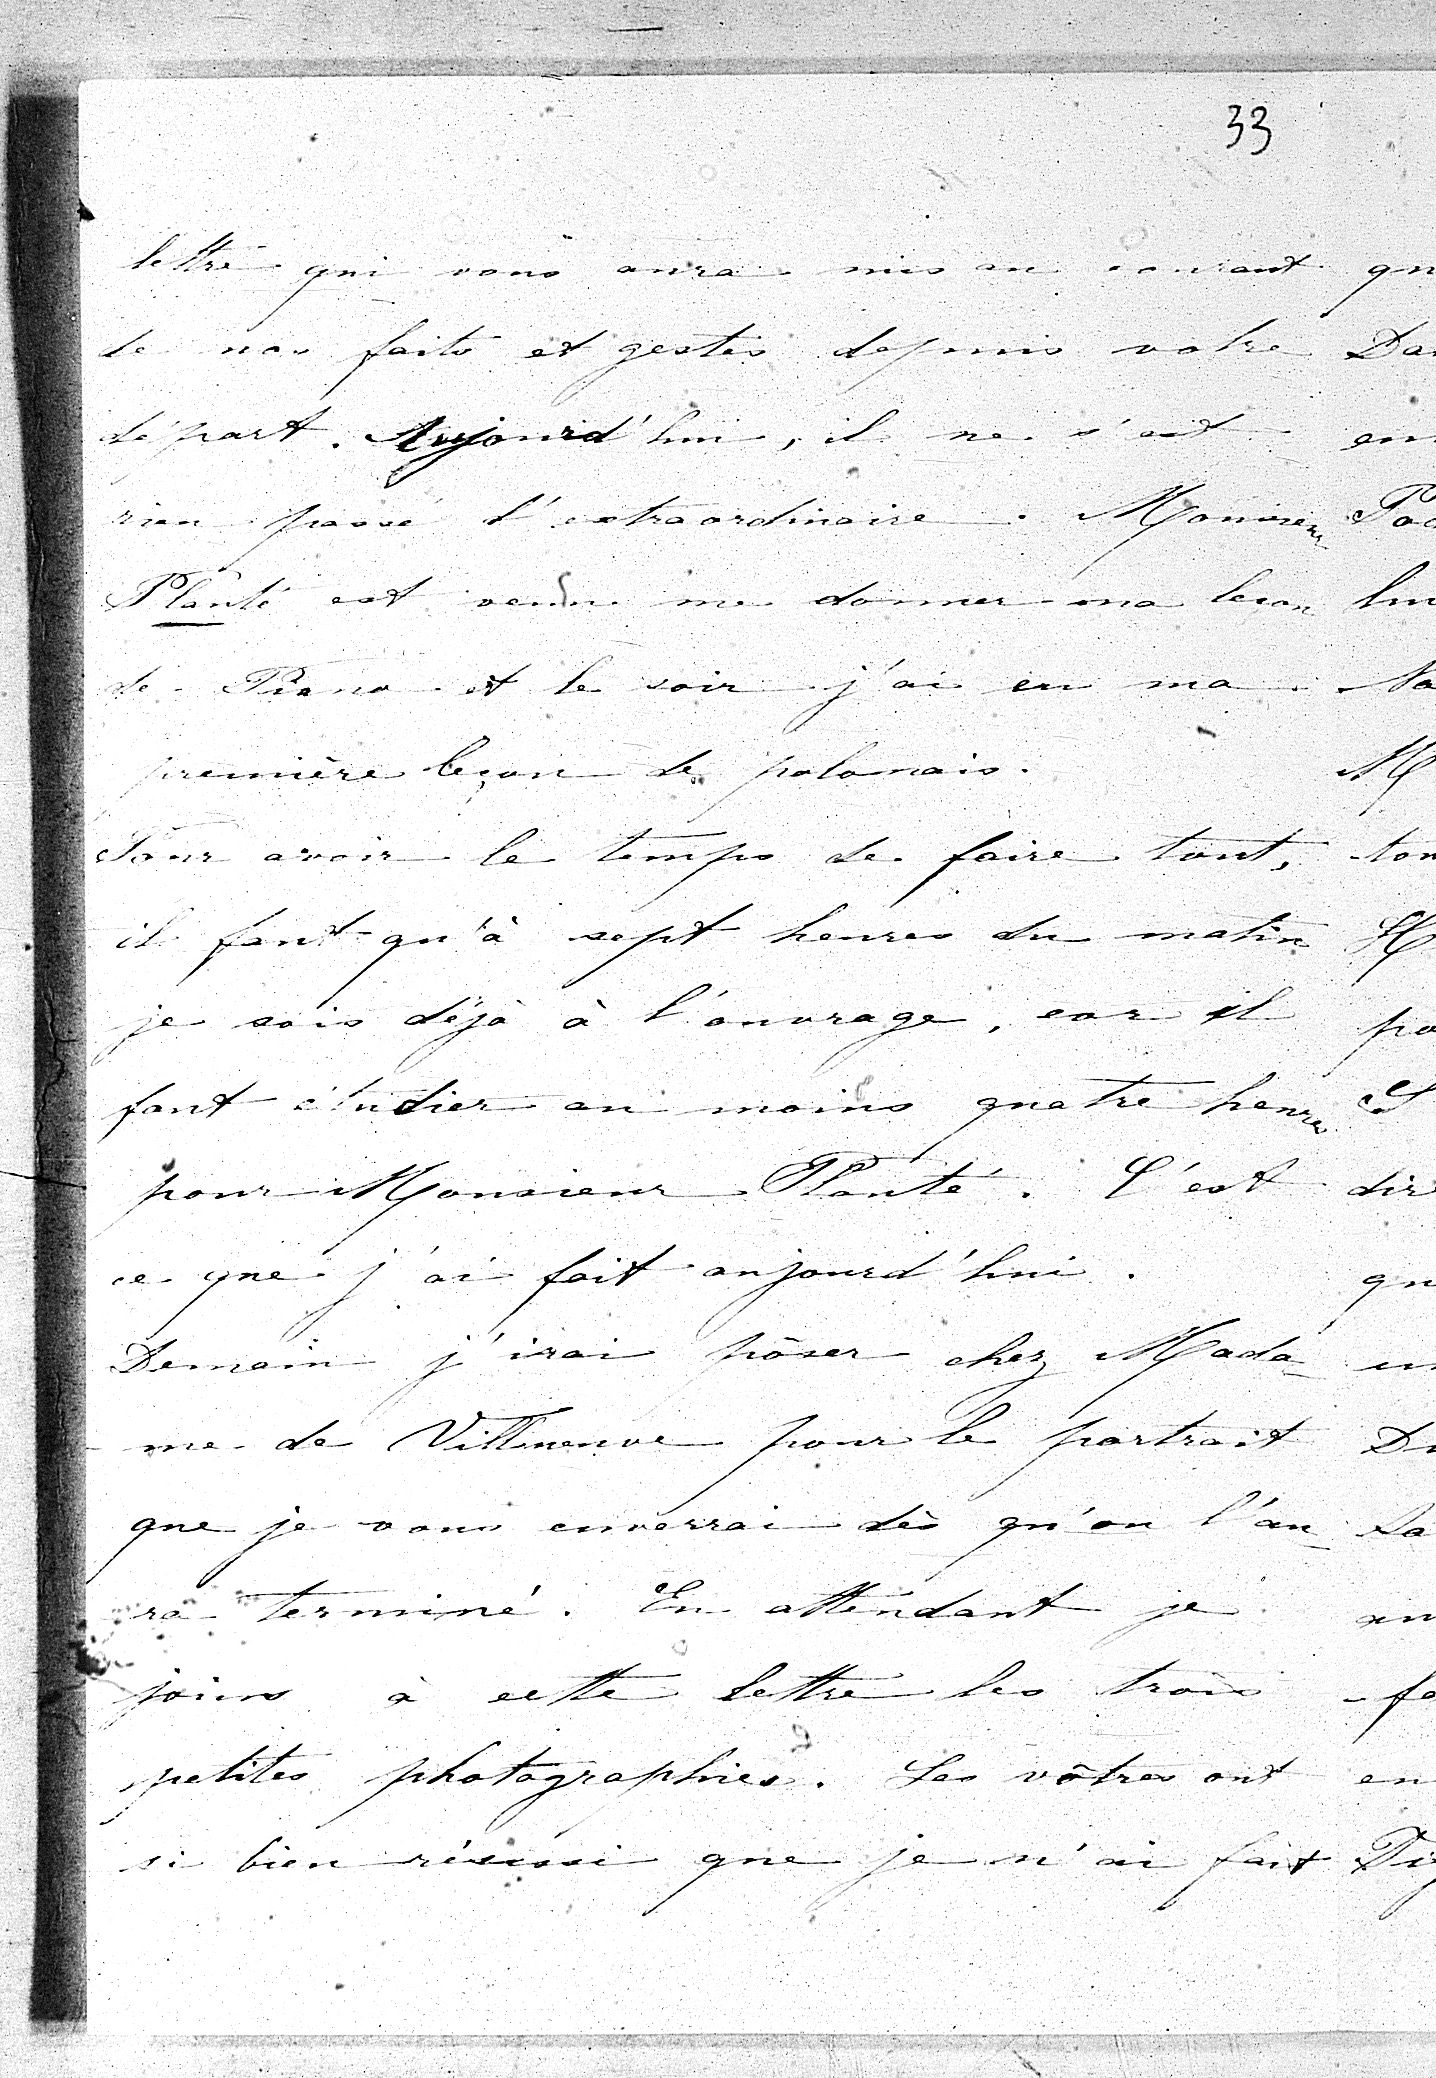 33
lettre qui vous aura mis au courant
de nos faits et gestes depuis votre
départ. Aujourd'hui, il ne s'est
rien passé d'extraordinaire. Monsieur
Planté est venu me donner ma leçon
de Piano et le soir j'ai eu ma
première leçon de polonais.
Pour avoir le temps de faire tout,
il faut qu'à sept heures du matin
je sois déjà à l'ouvrage, car il
faut étudier au moins quatre heures
pour Monsieur Planté. C'est
ce que j'ai fait aujourd'hui.
Demain j'irai pôser chez Mada-
me de Villneuve pour le portrait
que je vous enverrai dès qu'on l'au-
ra terminé. En attendant je
joins à cette lettre les trois
petites photographies. Les vôtres ont
si bien réussi que je n'ai fait